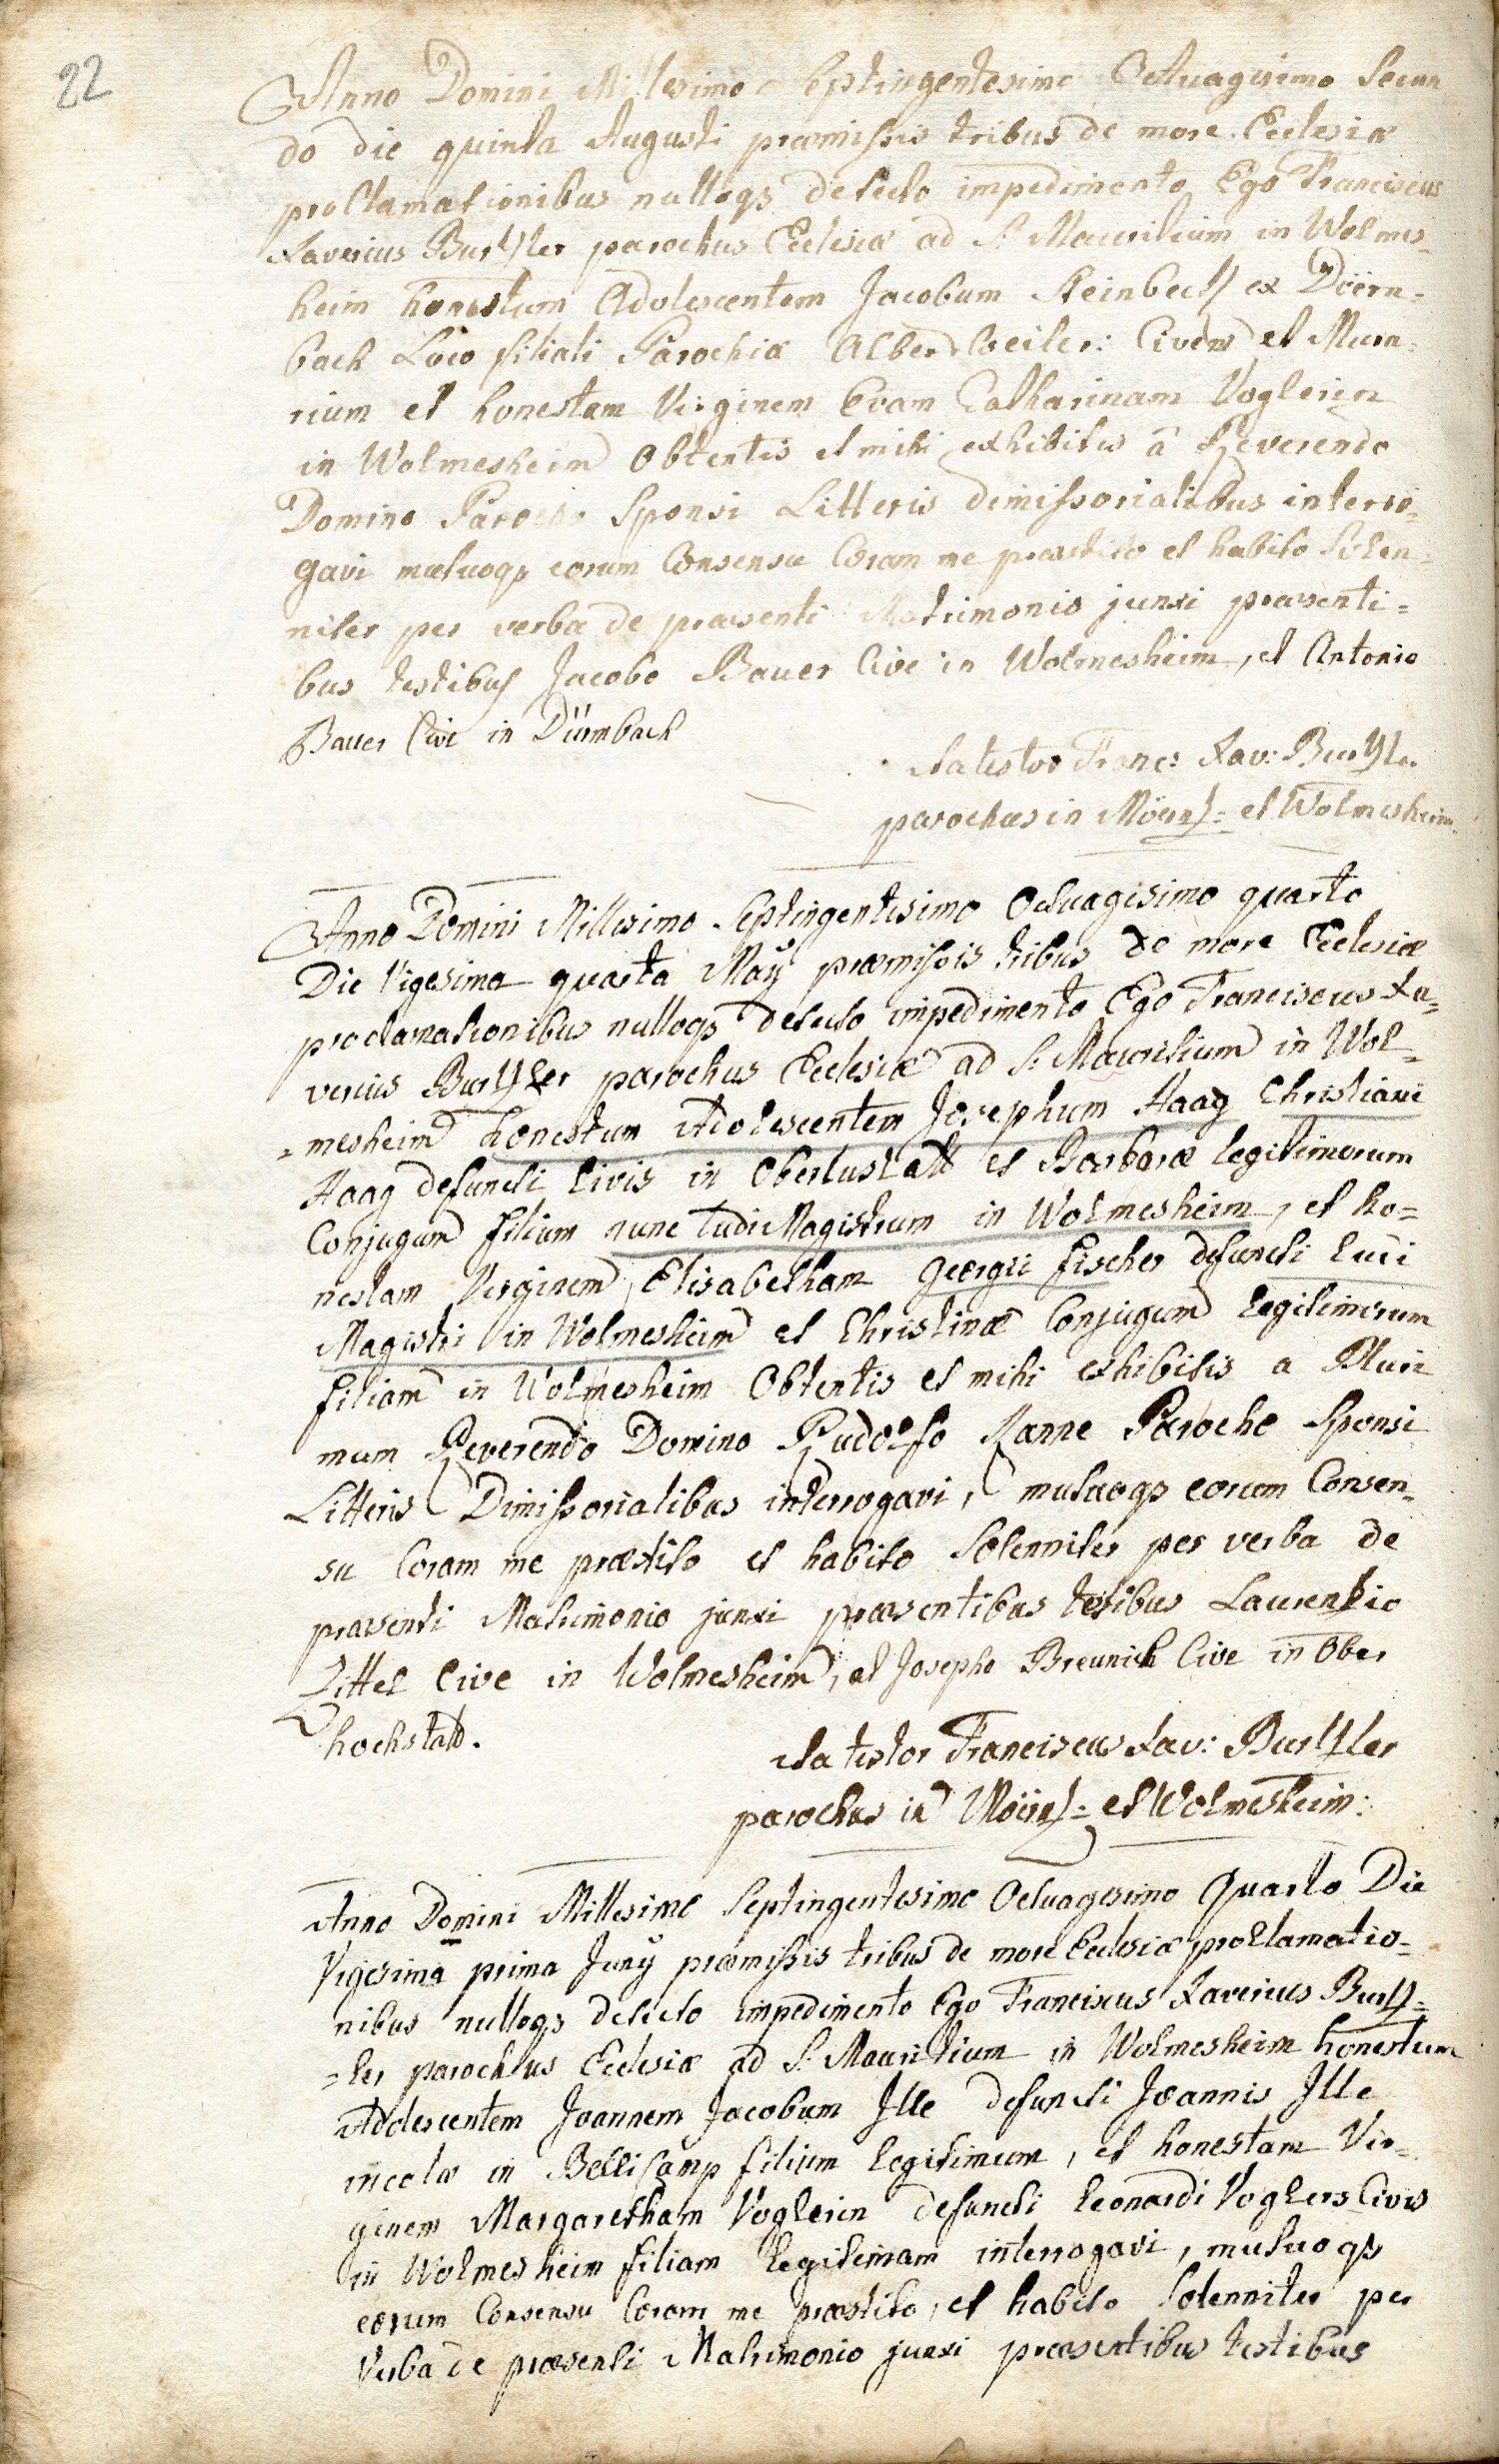 22
Anno Domini Millesimo Septingentesimo Octuagesimo Secun
do die quinta Augusti præmissis tribus de more Ecclesiæ
proclamationibus nulloqs detecto impedimento Ego Franciscus
Xaverius Burtzler parochus Ecclesiæ ad S: Mauritium in Wolmes-
heim honestum Adolescentem Jacobum Steinbeck ex Düern-
bach Loco filiali Parochiæ Albersweiler: Civem et Mura-
rium et honestam Virginem Evam Catharinam Voglerin
in Wolmesheim Obtentis et mihi exhibitis â Reverendo
Domino Parocho Sponsi Litteris dimissorialibus interro-
gavi mutuoqs eorum Consensu Coram me præstito et habito Solen-
niter per verba de præsenti Matrimonio junxi præsenti=
bus testibus Jacobo Bauer Cive in Wolmesheim, et Antonio
Bauer Cive in Dürnbach
Ita testor Franc: Xav: Burtzler
parochus in Mörtz= et Wolmesheim
Anno Domini Millesimo Septingentesimo Octuagesimo quarto
Die Vigesima quarta Maÿ præmissis tribus de more Ecclesiæ
proclamationibus nulloqs detecto impedimento Ego Franciscus Xa=
verius Burtzler parochus Ecclesiæ ad S: Mauritium in Wol=
=mesheim honestum Adolescentem Josephum Haag Christiani
Haag defuncti Civis in Oberlustatt et Barbaræ legitimorum
Conjugum filium nunc Ludi Magistrum in Wolmesheim, et ho=
nestam Virginem Elisabetham Georgii Fischer defuncti Ludi
Magistri in Wolmesheim et Christinæ Conjugum legitimorum
filiam in Wolmesheim Obtentis et mihi exhibitis a Pluri
mum Reverendo Domino Rudolfo Manne Parocho Sponsi
Litteris Dimissorialibus interrogavi, mutuoqs eorum Consen-
su Coram me præstito et habito Solenniter per verba de
præsenti Matrimonio junxi præsentibus testibus Laurentio
Zittel Cive in Wolmesheim, et Josepho Breunich Cive in Ober
hochstatt.
Ita testor Franciscus Xav: Burtzler
parochus in Mörtz= et Wolmesheim:
Anno Domini Millesimo Septingentesimo Octuagesimo Quarto Die
Vigesima prima Junÿ præmissis tribus de more Ecclesiæ proclamatio=
nibus nulloqs detecto impedimento Ego Franciscus Xaverius Burtz=
=ler parochus Ecclesiæ ad S: Mauritium in Wolmesheim honestum
Adolescentem Joannem Jacobum Ille defuncti Joannis Ille
incolæ in Bellicamp filium legitimum, et honestam Vir-
ginem Margaretham Voglerin defuncti Leonardi Voglers Civis
in Wolmesheim filiam legitimam interrogavi, mutuoqs
eorum Consensu Coram me præstito, et habito Solenniter per
Verba de præsenti Matrimonio junxi præsentibus testibus